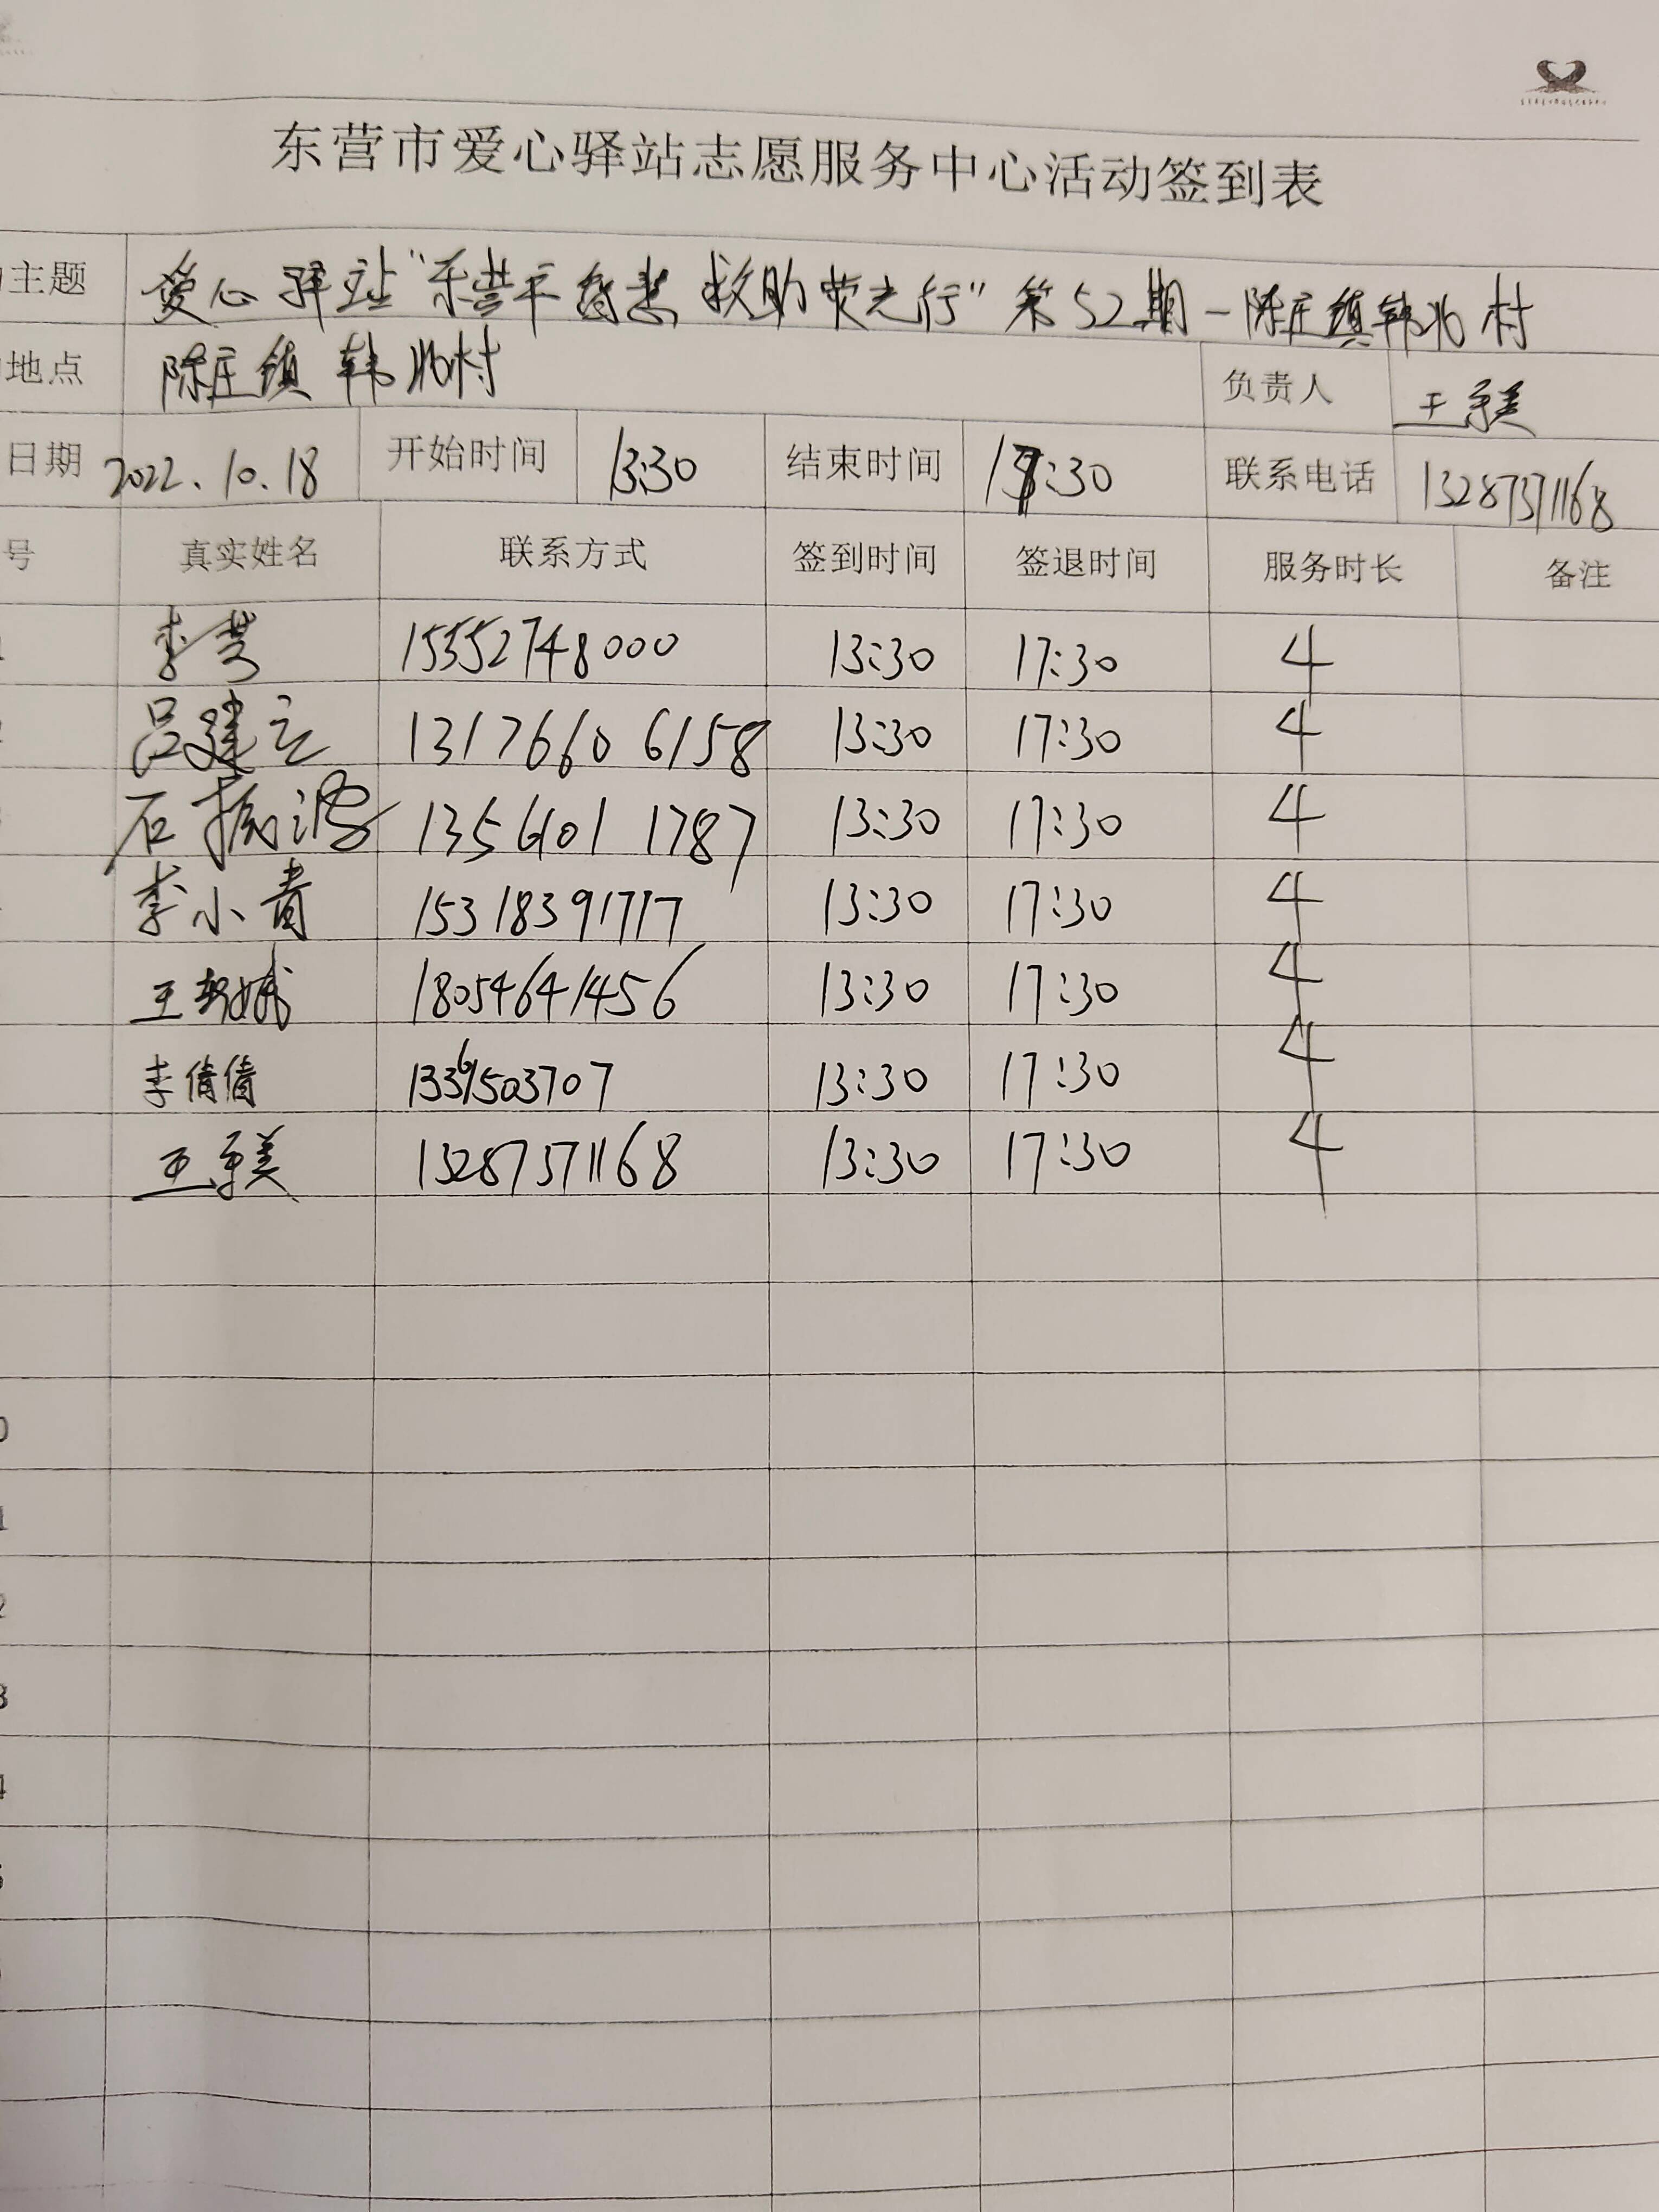 东营市爱心驿站志愿服务中心活动签到表
主题 爱心驿站"东营 救助荧光行"第52期-陈庄镇韩北村
地点 陈庄镇韩北村 负责人
日期 2022.10.18 开始时间 13:30 结束时间 17:30 联系电话 13287371168
号 真实姓名 联系方式 签到时间 签退时间 服务时长 备注
李 15552748000 13:30 17:30 4
吕建立 13176606158 13:30 17:30 4
石振波 13561011787 13:30 17:30 4
李小青 15318391717 13:30 17:30 4
王 18054641456 13:30 17:30 4
李倩倩 13361503707 13:30 17:30 4
王 美 13287371168 13:30 17:30 4